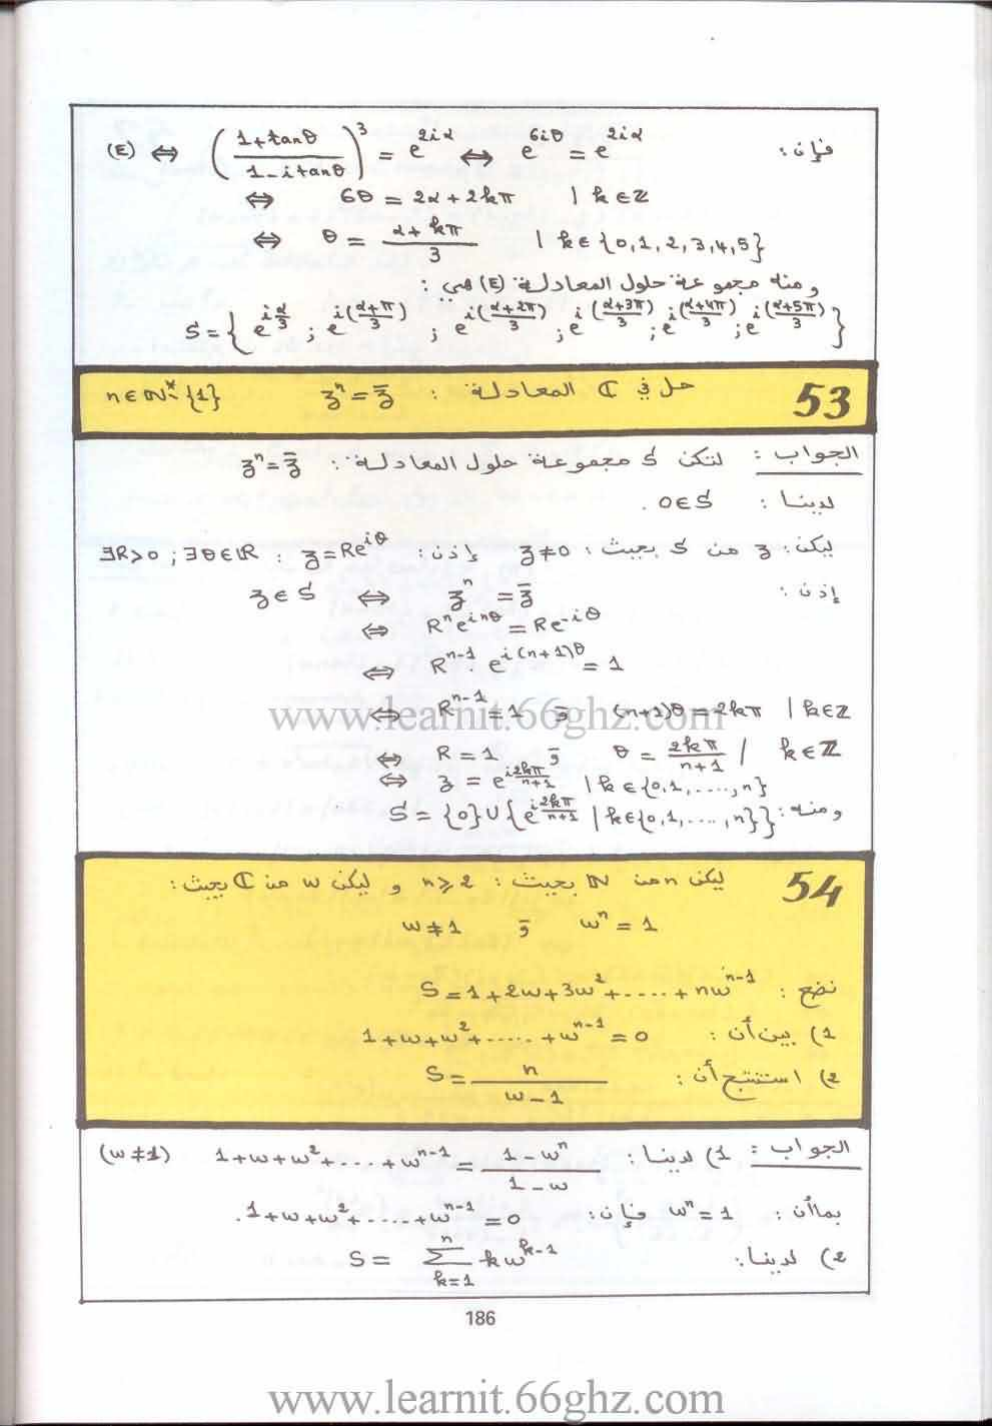 فإن : (E) ⇔ ((1+tanθ)/(1-itanθ))³ = e^{2iα} ⇔ e^{6iθ} = e^{2iα}
⇔ 6θ = 2α + 2kπ | k∈ℤ
⇔ θ = (α+kπ)/3 | k∈{0,1,2,3,4,5}
ومنه مجموعة حلول المعادلة (E) هي :
S = { e^{iα/3} ; e^{i(α+π)/3} ; e^{i(α+2π)/3} ; e^{i(α+3π)/3} ; e^{i(α+4π)/3} ; e^{i(α+5π)/3} }
53 حل في ℂ المعادلة : z^n = z̄ n∈ℕ*-{1}
الجواب : لتكن S مجموعة حلول المعادلة : z^n = z̄
لدينا : 0∈S .
ليكن : z من S بحيث : z≠0 إذن : ∃R>0 ; ∃θ∈ℝ : z=Re^{iθ}
إذن : z∈S ⇔ z^n = z̄
⇔ R^n e^{inθ} = Re^{-iθ}
⇔ R^{n-1}. e^{i(n+1)θ} = 1
⇔ R^{n-1} = 1 و (n+1)θ = 2kπ | k∈ℤ
www.learnit.66ghz.com
⇔ R = 1 و θ = 2kπ/(n+1) | k∈ℤ
⇔ z = e^{i2kπ/(n+1)} | k∈{0,1,....,n}
ومنه : S = {0}∪{e^{i2kπ/(n+1)} | k∈{0,1,...,n}}
54 ليكن n من ℕ بحيث : n⩾2 و ليكن w من ℂ بحيث :
w^n = 1 و w≠1
نضع : S = 1+2w+3w²+....+nw^{n-1}
1) بين أن : 1+w+w²+.....+w^{n-1} = 0
2) استنتج أن : S = n/(w-1)
الجواب : 1) لدينا : 1+w+w²+....+w^{n-1} = (1-w^n)/(1-w) (w≠1)
بما أن : w^n = 1 فإن : 1+w+w²+....+w^{n-1} = 0.
2) لدينا : S = ∑_{k=1}^{n} kw^{k-1}
186
www.learnit.66ghz.com